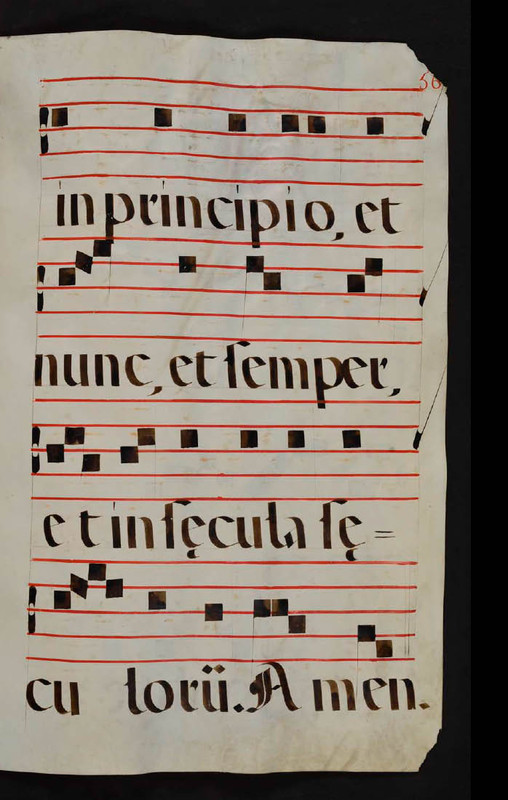 56
in principio, et
nunc, et ſemper,
et in ſęcula ſę=
cu lorū. Amen.